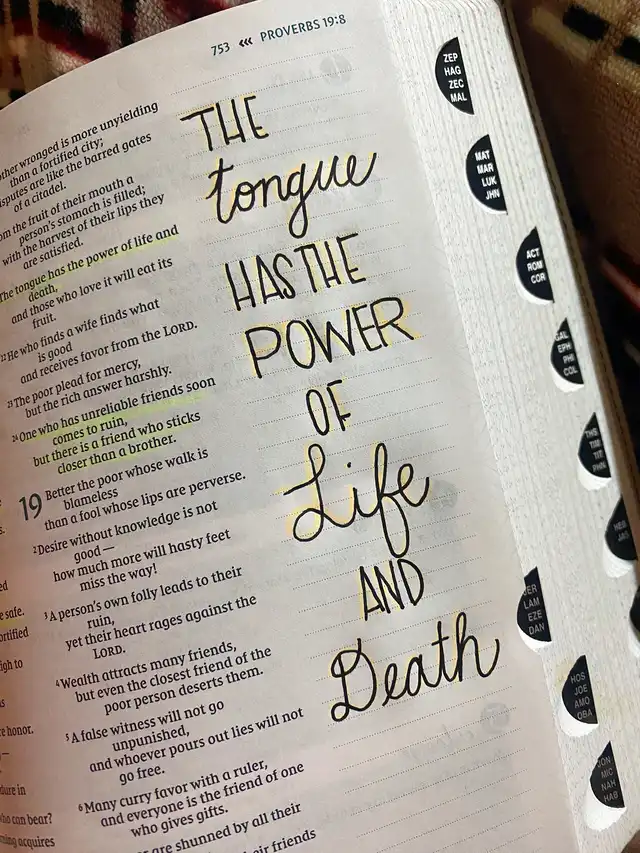 753 ««« PROVERBS 19:8
other wronged is more unyielding
than a fortified city;
disputes are like the barred gates
of a citadel.
From the fruit of their mouth a
person's stomach is filled;
with the harvest of their lips they
are satisfied.
The tongue has the power of life and
death,
and those who love it will eat its
fruit.
22 He who finds a wife finds what
is good
and receives favor from the LORD.
23 The poor plead for mercy,
but the rich answer harshly.
24 One who has unreliable friends soon
comes to ruin,
but there is a friend who sticks
closer than a brother.
19 Better the poor whose walk is
blameless
than a fool whose lips are perverse.
2 Desire without knowledge is not
good—
how much more will hasty feet
miss the way!
3 A person's own folly leads to their
ruin,
yet their heart rages against the
LORD.
4 Wealth attracts many friends,
but even the closest friend of the
poor person deserts them.
5 A false witness will not go
unpunished,
and whoever pours out lies will not
go free.
6 Many curry favor with a ruler,
and everyone is the friend of one
who gives gifts.
are shunned by all their
friends
THE
tongue
HAS THE
POWER
OF
Life
AND
Death
ZEP
HAG
ZEC
MAL
MAT
MAR
LUK
JHN
ACT
ROM
COR
GAL
EPH
PHI
COL
THS
TIM
TIT
PHN
HEB
JAS
JER
LAM
EZE
DAN
HOS
JOE
AMO
OBA
JON
MIC
NAH
HAB
safe.
honor.
who can bear?
acquires